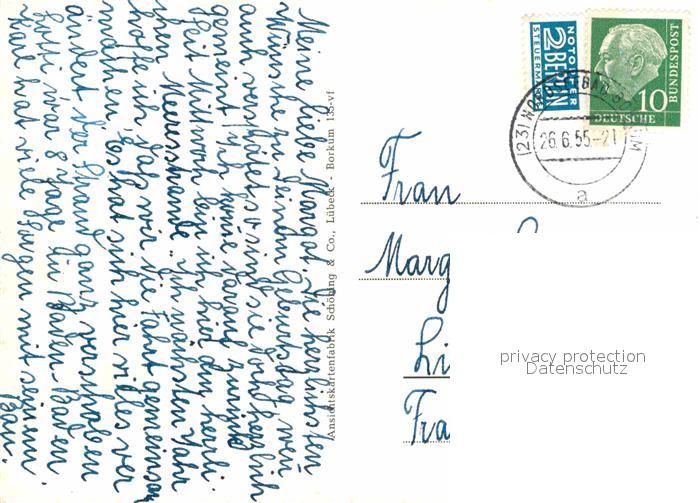 Meine liebe Margot. Die herzlichsten
Wünsche zu Deinem Geburtstag, wenn
auch verspätet, so sind sie doch herzlich
gemeint. Ich komme darauf zurück.
Seit Mittwoch bin ich hier am herrli-
chen Meeresstrande. Im nächsten Jahr
hoffe ich, daß wir die Fahrt gemeinsam
machen. Es hat sich hier vieles ver
ändert der Strand ganz verschoben
Lotti war 8 Tage in Baden-Baden
Karl hat viele Sorgen mit seinem
Bau.
Ansichtskartenfabrik Schöning & Co., Lübeck - Borkum 135-vf
NOTOPFER
2 BERLIN
STEUERMARKE
DEUTSCHE
BUNDESPOST
10
(23) NORDSEEBAD BORKUM
26.6.55-21
a
Frau
Marg
Li
Fra
privacy protection
Datenschutz